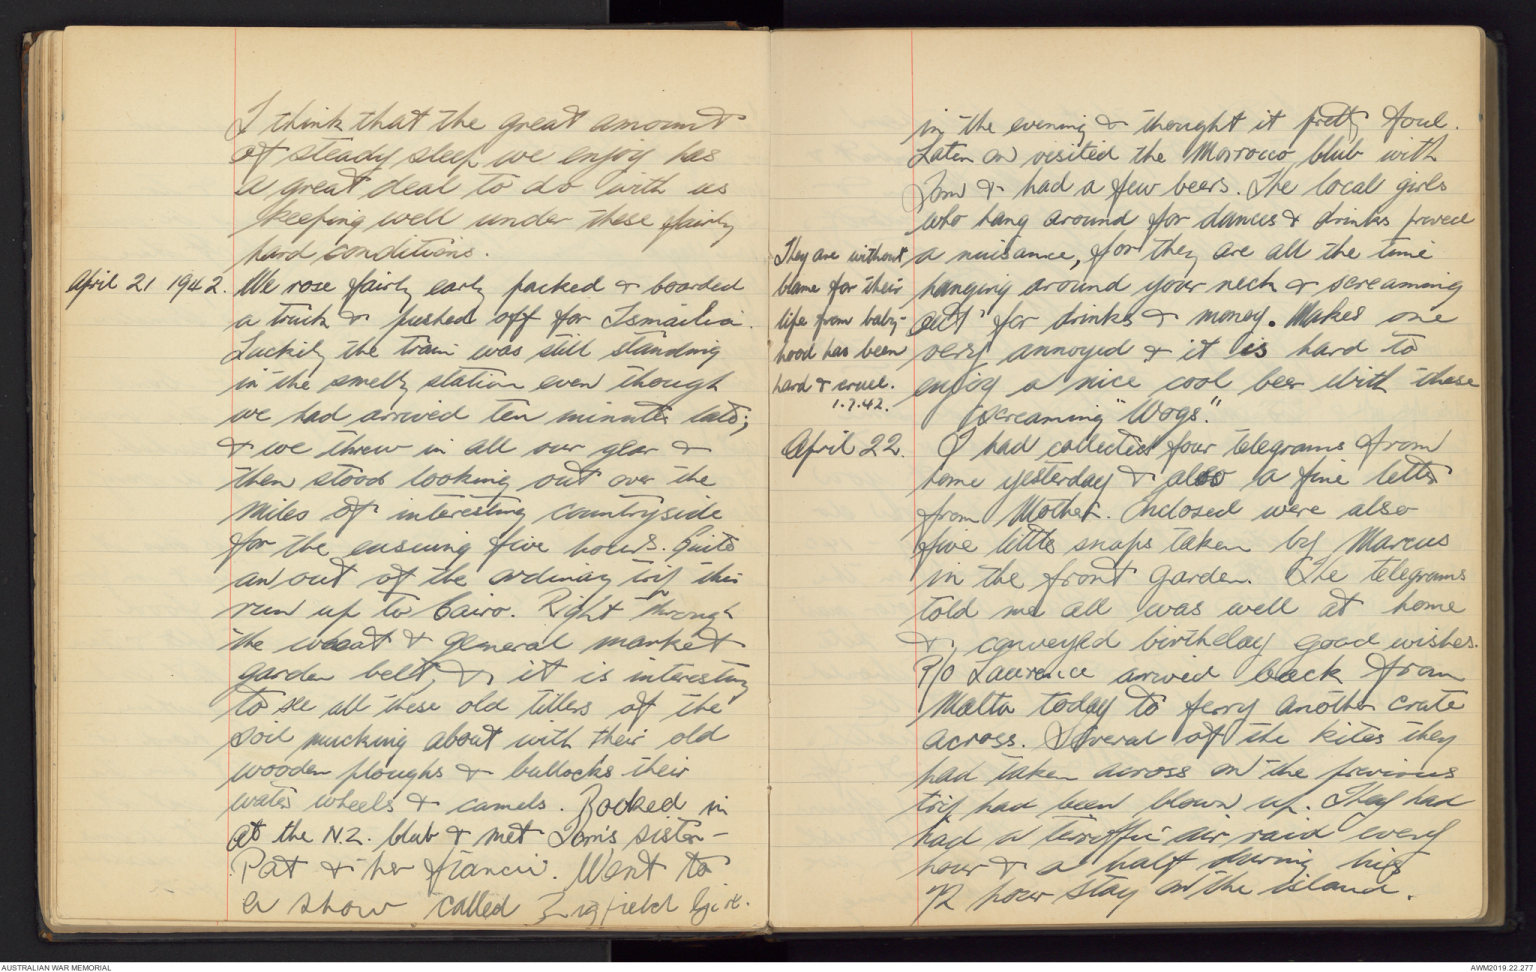 I think that the great amount
of steady sleep we enjoy has
a great deal to do with us
keeping well under these fairly
hard conditions.
April 21 1942. We rose fairly early packed & boarded
a truck & pushed off for Ismailia.
Luckily the train was still standing
in the smelly station even though
we had arrived ten minutes late;
& we threw in all our gear &
then stood looking out over the
miles of interesting countryside
for the ensuing five hours. Quite
an out of the ordinary trip this
run up to Cairo. Right through
the wheat & general market
garden belt, & it is interesting
to see all these old tillers of the
soil mucking about with their old
wooden ploughs & bullocks their
water wheels & camels. Booked in
at the N.Z. Club & met Tom's sister -
Pat & her fiancé. Went to
a show called Ziegfield Girl.
in the evening & thought it pretty foul.
Later on visited the Morrocco Club with
Tom & had a few beers. The local girls
who hang around for dances & drinks proved
a nuisance, for they are all the time
hanging around your neck & screaming
out for drinks & money. Makes one
very annoyed & it is hard to
enjoy a nice cool beer with these
screaming "Wogs".
They are without
blame for their
life from baby-
hood has been
hard & cruel.
1.7.42.
April 22. I had collected four telegrams from
home yesterday & also a fine letter
from Mother. Enclosed were also
five little snaps taken by Marcus
in the front garden. The telegrams
told me all was well at home
& conveyed birthday good wishes.
P/O Laurence arrived back from
Malta today to ferry another crate
across. Several of the kites they
had taken across on the previous
trip had been blown up. They had
had a terriffic air raid every
hour & a half during his
72 hour stay on the island.
AUSTRALIAN WAR MEMORIAL
AWM2019.22.277